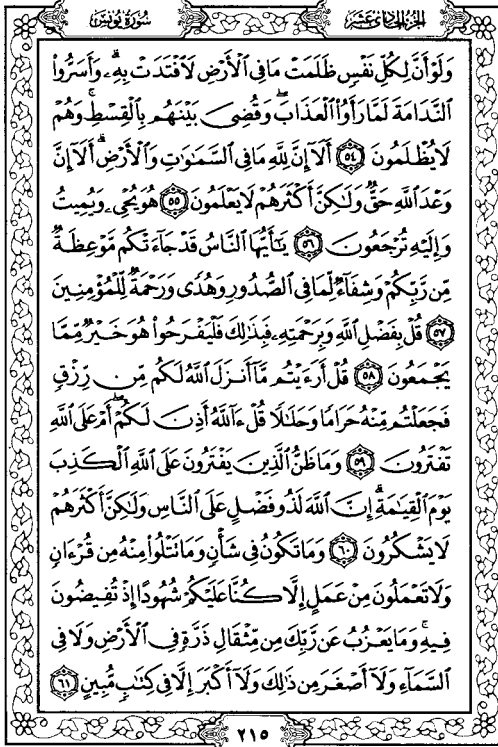 سُورَةُ يُونُسَ الجُزْءُ الحَادِي عَشَرَ
وَلَوْ أَنَّ لِكُلِّ نَفْسٍ ظَلَمَتْ مَا فِي ٱلْأَرْضِ لَٱفْتَدَتْ بِهِۦۗ وَأَسَرُّوا۟
ٱلنَّدَامَةَ لَمَّا رَأَوُا۟ ٱلْعَذَابَۖ وَقُضِىَ بَيْنَهُم بِٱلْقِسْطِۚ وَهُمْ
لَا يُظْلَمُونَ ٥٤ أَلَآ إِنَّ لِلَّهِ مَا فِى ٱلسَّمَٰوَٰتِ وَٱلْأَرْضِۗ أَلَآ إِنَّ
وَعْدَ ٱللَّهِ حَقٌّ وَلَٰكِنَّ أَكْثَرَهُمْ لَا يَعْلَمُونَ ٥٥ هُوَ يُحْىِۦ وَيُمِيتُ
وَإِلَيْهِ تُرْجَعُونَ ٥٦ يَٰٓأَيُّهَا ٱلنَّاسُ قَدْ جَآءَتْكُم مَّوْعِظَةٌ
مِّن رَّبِّكُمْ وَشِفَآءٌ لِّمَا فِى ٱلصُّدُورِ وَهُدًى وَرَحْمَةٌ لِّلْمُؤْمِنِينَ
٥٧ قُلْ بِفَضْلِ ٱللَّهِ وَبِرَحْمَتِهِۦ فَبِذَٰلِكَ فَلْيَفْرَحُوا۟ هُوَ خَيْرٌ مِّمَّا
يَجْمَعُونَ ٥٨ قُلْ أَرَءَيْتُم مَّآ أَنزَلَ ٱللَّهُ لَكُم مِّن رِّزْقٍ
فَجَعَلْتُم مِّنْهُ حَرَامًا وَحَلَٰلًا قُلْ ءَآللَّهُ أَذِنَ لَكُمْۖ أَمْ عَلَى ٱللَّهِ
تَفْتَرُونَ ٥٩ وَمَا ظَنُّ ٱلَّذِينَ يَفْتَرُونَ عَلَى ٱللَّهِ ٱلْكَذِبَ
يَوْمَ ٱلْقِيَٰمَةِۗ إِنَّ ٱللَّهَ لَذُو فَضْلٍ عَلَى ٱلنَّاسِ وَلَٰكِنَّ أَكْثَرَهُمْ
لَا يَشْكُرُونَ ٦٠ وَمَا تَكُونُ فِى شَأْنٍ وَمَا تَتْلُوا۟ مِنْهُ مِن قُرْءَانٍ
وَلَا تَعْمَلُونَ مِنْ عَمَلٍ إِلَّا كُنَّا عَلَيْكُمْ شُهُودًا إِذْ تُفِيضُونَ
فِيهِۚ وَمَا يَعْزُبُ عَن رَّبِّكَ مِن مِّثْقَالِ ذَرَّةٍ فِى ٱلْأَرْضِ وَلَا فِى
ٱلسَّمَآءِ وَلَآ أَصْغَرَ مِن ذَٰلِكَ وَلَآ أَكْبَرَ إِلَّا فِى كِتَٰبٍ مُّبِينٍ ٦١
٢١٥